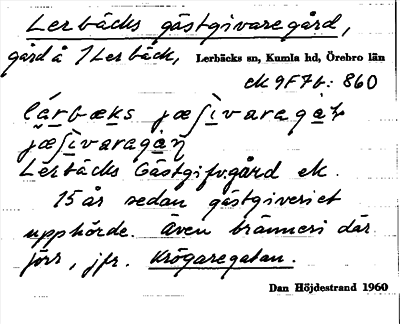 Lerbäcks gästgivaregård,
gård å 1 Lerbäck, Lerbäcks sn, Kumla hd, Örebro län
ek 9F7b: 860
lárbæks jæʃivaragaɽ
jæʃivaragaɳ
Lerbäcks Gästgifv.gård ek.
15 år sedan gästgiveriet
upphörde. Även bränneri där
förr, jfr. Krögaregatan.
Dan Höjdestrand 1960